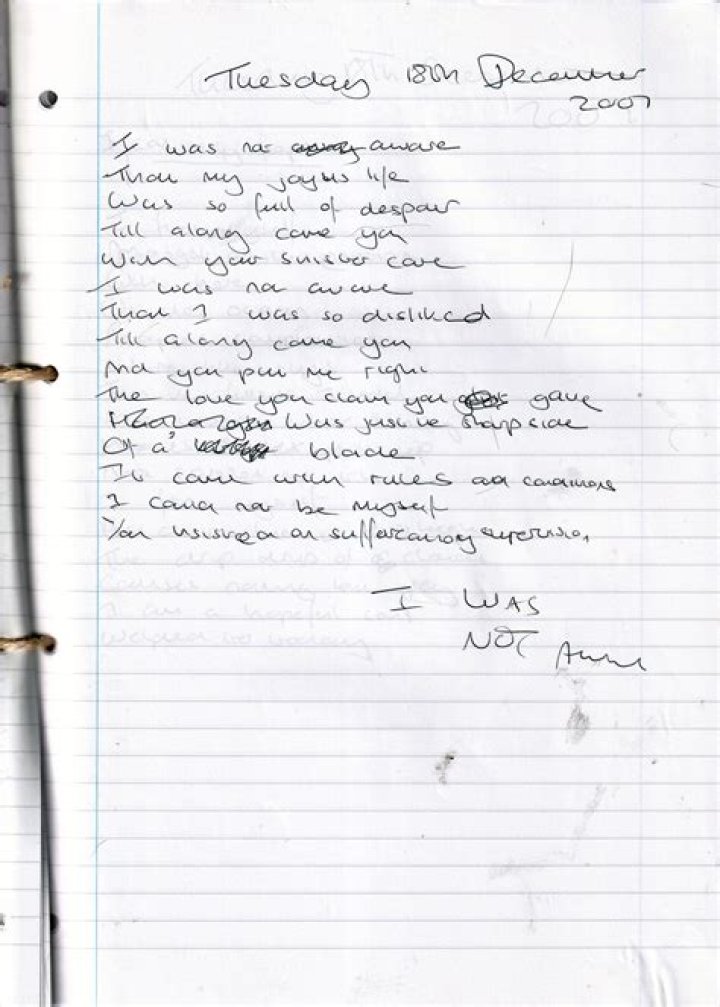 Tuesday 18th December
2007
I was not aware
That my joyous life
Was so full of despair
Till along came you
With your sinister care
I was not aware
That I was so disliked
Till along came you
And you put me right
The love you claim you gave
Was just the sharp side
Of a blade
It came with rules and conditions
I could not be myself
You insisted on suffocating supervision
I WAS
NOT Aware